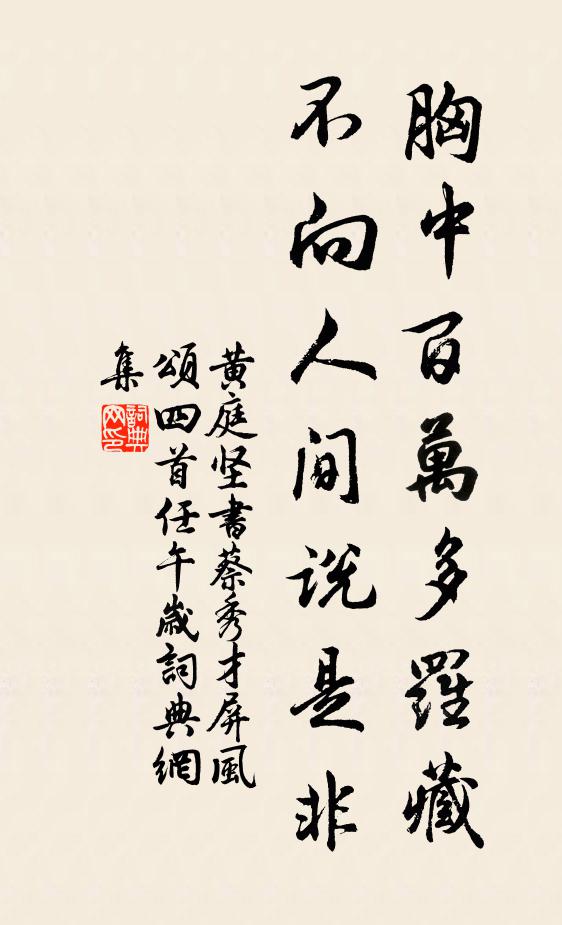 胸中百萬多羅藏
不向人间说是非
黄庭坚書蔡秀才屏風
頌四首任午歲詞典網
集
詞典网印